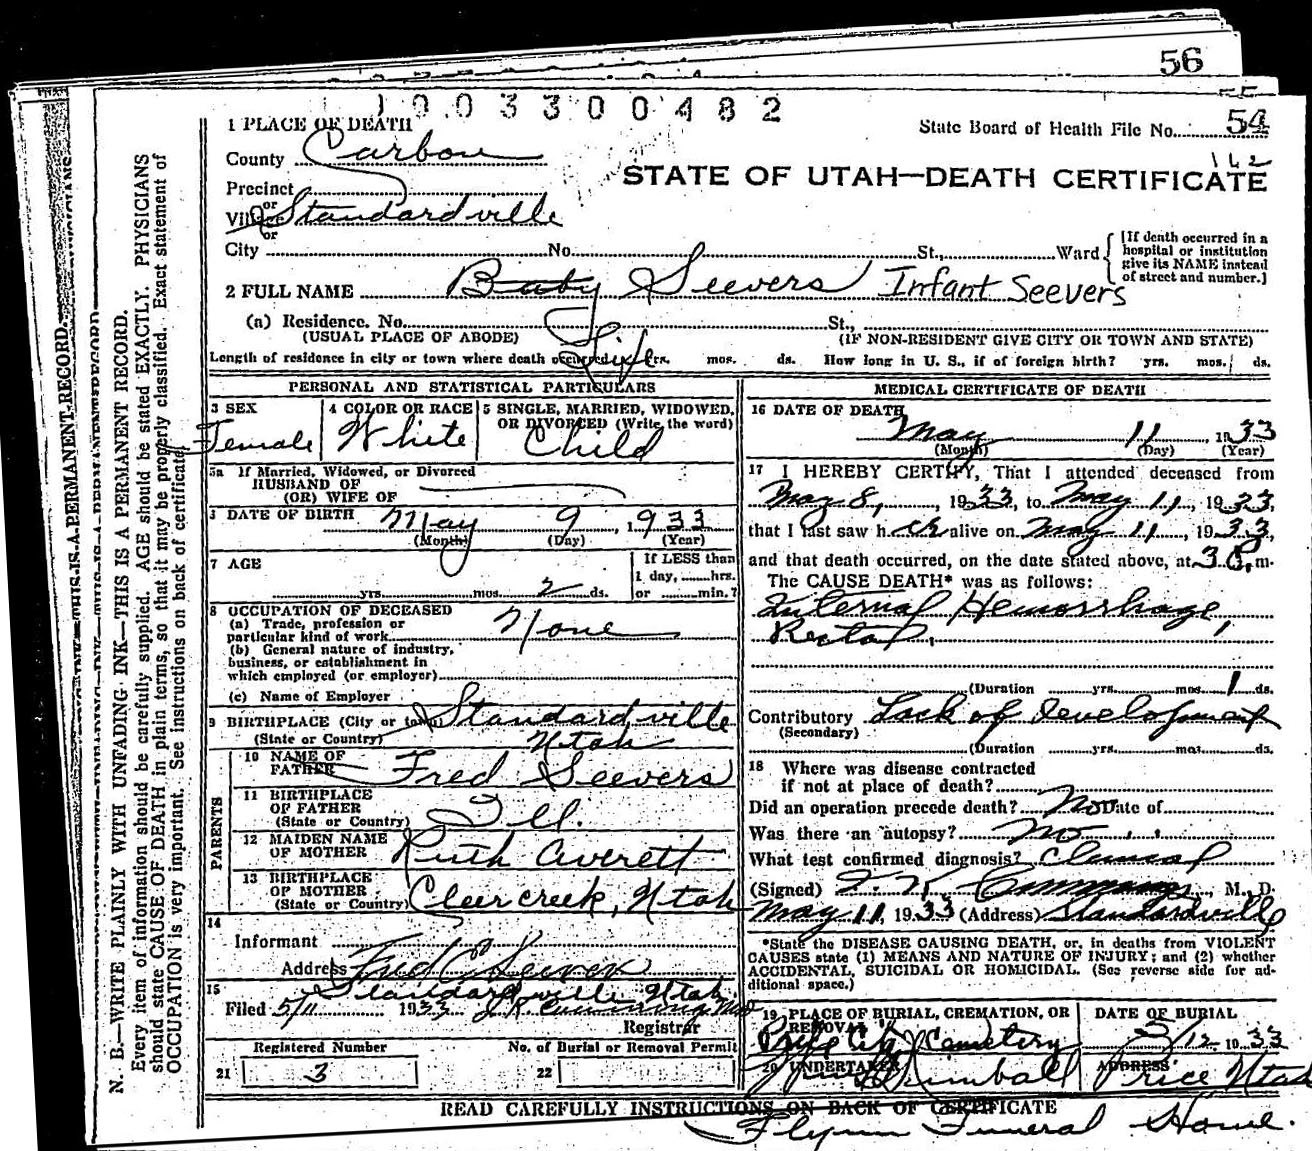 56
55
1003300482
State Board of Health File No. 54
162
STATE OF UTAH—DEATH CERTIFICATE
1 PLACE OF DEATH
County Carbon
Precinct
or
Village Standardville
or
City No. St., Ward
[If death occurred in a hospital or institution give its NAME instead of street and number.]
2 FULL NAME Baby Seevers Infant Seevers
(a) Residence. No. St.,
(USUAL PLACE OF ABODE) (IF NON-RESIDENT GIVE CITY OR TOWN AND STATE)
Length of residence in city or town where death occurred Life yrs. mos. ds. How long in U. S., if of foreign birth? yrs. mos. ds.
PERSONAL AND STATISTICAL PARTICULARS
3 SEX Female
4 COLOR OR RACE White
5 SINGLE, MARRIED, WIDOWED, OR DIVORCED (Write the word) Child
5a If Married, Widowed, or Divorced
HUSBAND OF
(OR) WIFE OF
DATE OF BIRTH May 9, 1933
(Month) (Day) (Year)
7 AGE yrs. mos. 2 ds.
If LESS than 1 day, hrs. or min.?
8 OCCUPATION OF DECEASED
(a) Trade, profession or particular kind of work None
(b) General nature of industry, business, or establishment in which employed (or employer)
(c) Name of Employer
9 BIRTHPLACE (City or town) Standardville
(State or Country) Utah
PARENTS
10 NAME OF FATHER Fred Seevers
11 BIRTHPLACE OF FATHER (State or Country) Ill.
12 MAIDEN NAME OF MOTHER Ruth Averett
13 BIRTHPLACE OF MOTHER (State or Country) Cleercreek, Utah
14
Informant Fred Seevers
Address Standardville Utah
15
Filed 5/11 1933
Registrar
Registered Number No. of Burial or Removal Permit
21 3 22
MEDICAL CERTIFICATE OF DEATH
16 DATE OF DEATH
May 11, 1933
(Month) (Day) (Year)
17 I HEREBY CERTIFY, That I attended deceased from
May 8, 1933, to May 11, 1933,
that I last saw h er alive on May 11, 1933,
and that death occurred, on the date stated above, at 3 P.m.
The CAUSE DEATH* was as follows:
Internal Hemorrhage,
Rectal,
(Duration yrs. mos. 1 ds.
Contributory Lack of Development
(Secondary)
(Duration yrs. mos. ds.
18 Where was disease contracted
if not at place of death?
Did an operation precede death? No Date of
Was there an autopsy? no
What test confirmed diagnosis? Clinical
(Signed) Cummings, M. D.
May 11, 1933 (Address) Standardville
*State the DISEASE CAUSING DEATH, or, in deaths from VIOLENT
CAUSES state (1) MEANS AND NATURE OF INJURY; and (2) whether
ACCIDENTAL, SUICIDAL OR HOMICIDAL. (See reverse side for ad-
ditional space.)
19 PLACE OF BURIAL, CREMATION, OR REMOVAL
Price City Cemetery
DATE OF BURIAL
5/12 1933
20 UNDERTAKER Kimball
ADDRESS Price Utah
READ CAREFULLY INSTRUCTIONS ON BACK OF CERTIFICATE
Flynn Funeral Home.
N. B.—WRITE PLAINLY WITH UNFADING INK—THIS IS A PERMANENT RECORD.
Every item of information should be carefully supplied. AGE should be stated EXACTLY. PHYSICIANS
should state CAUSE OF DEATH in plain terms, so that it may be properly classified. Exact statement of
OCCUPATION is very important. See instructions on back of certificate.